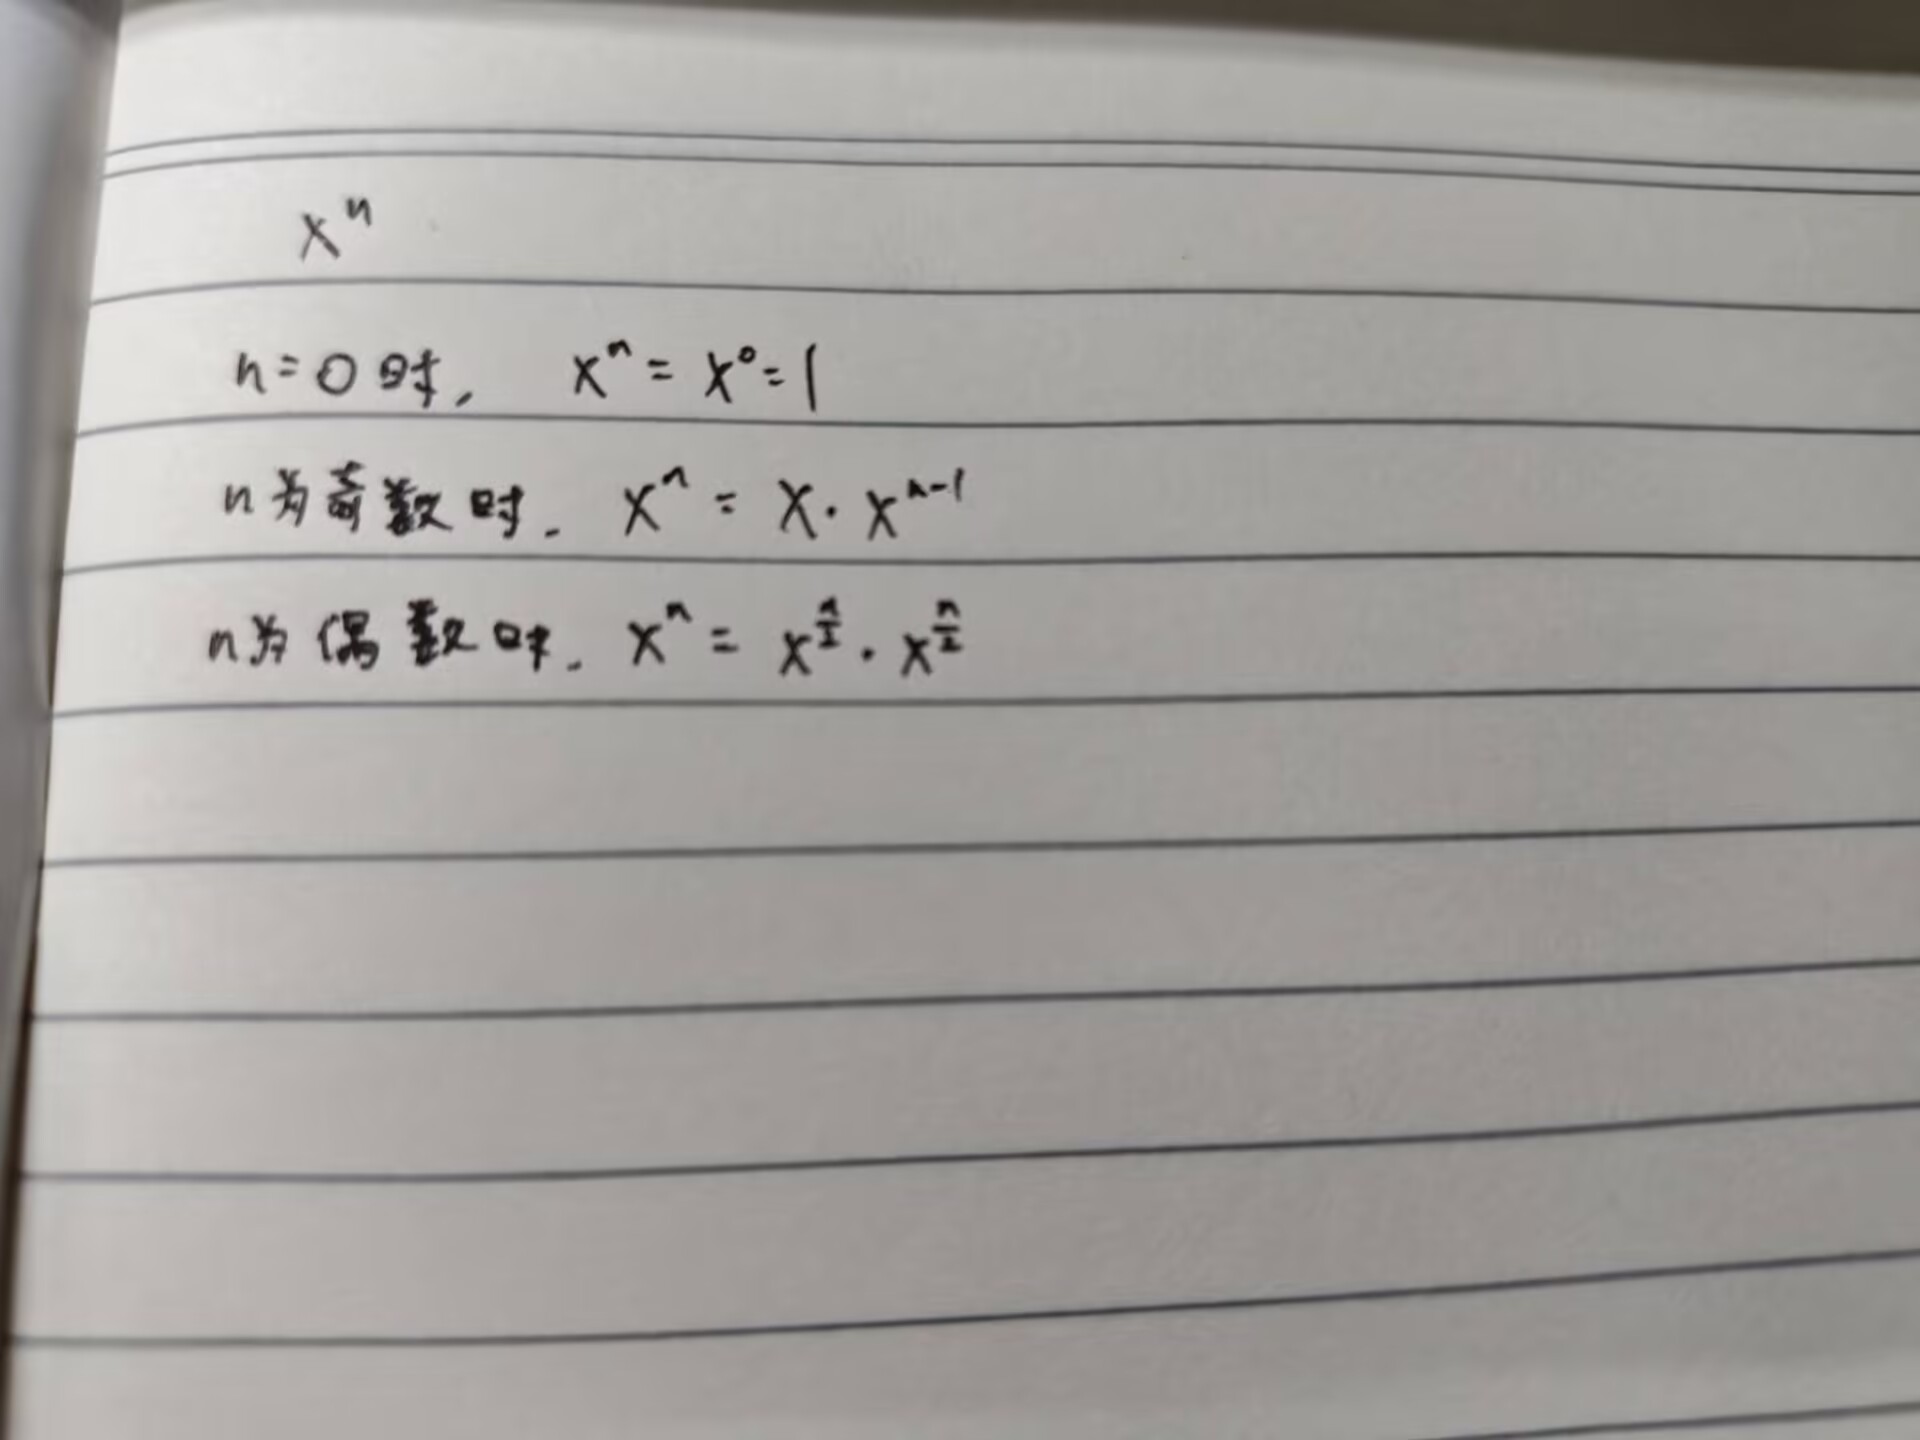 xⁿ
n=0时, xⁿ = x⁰ = 1
n为奇数时. xⁿ = x · xⁿ⁻¹
n为偶数时. xⁿ = x^(n/2) · x^(n/2)